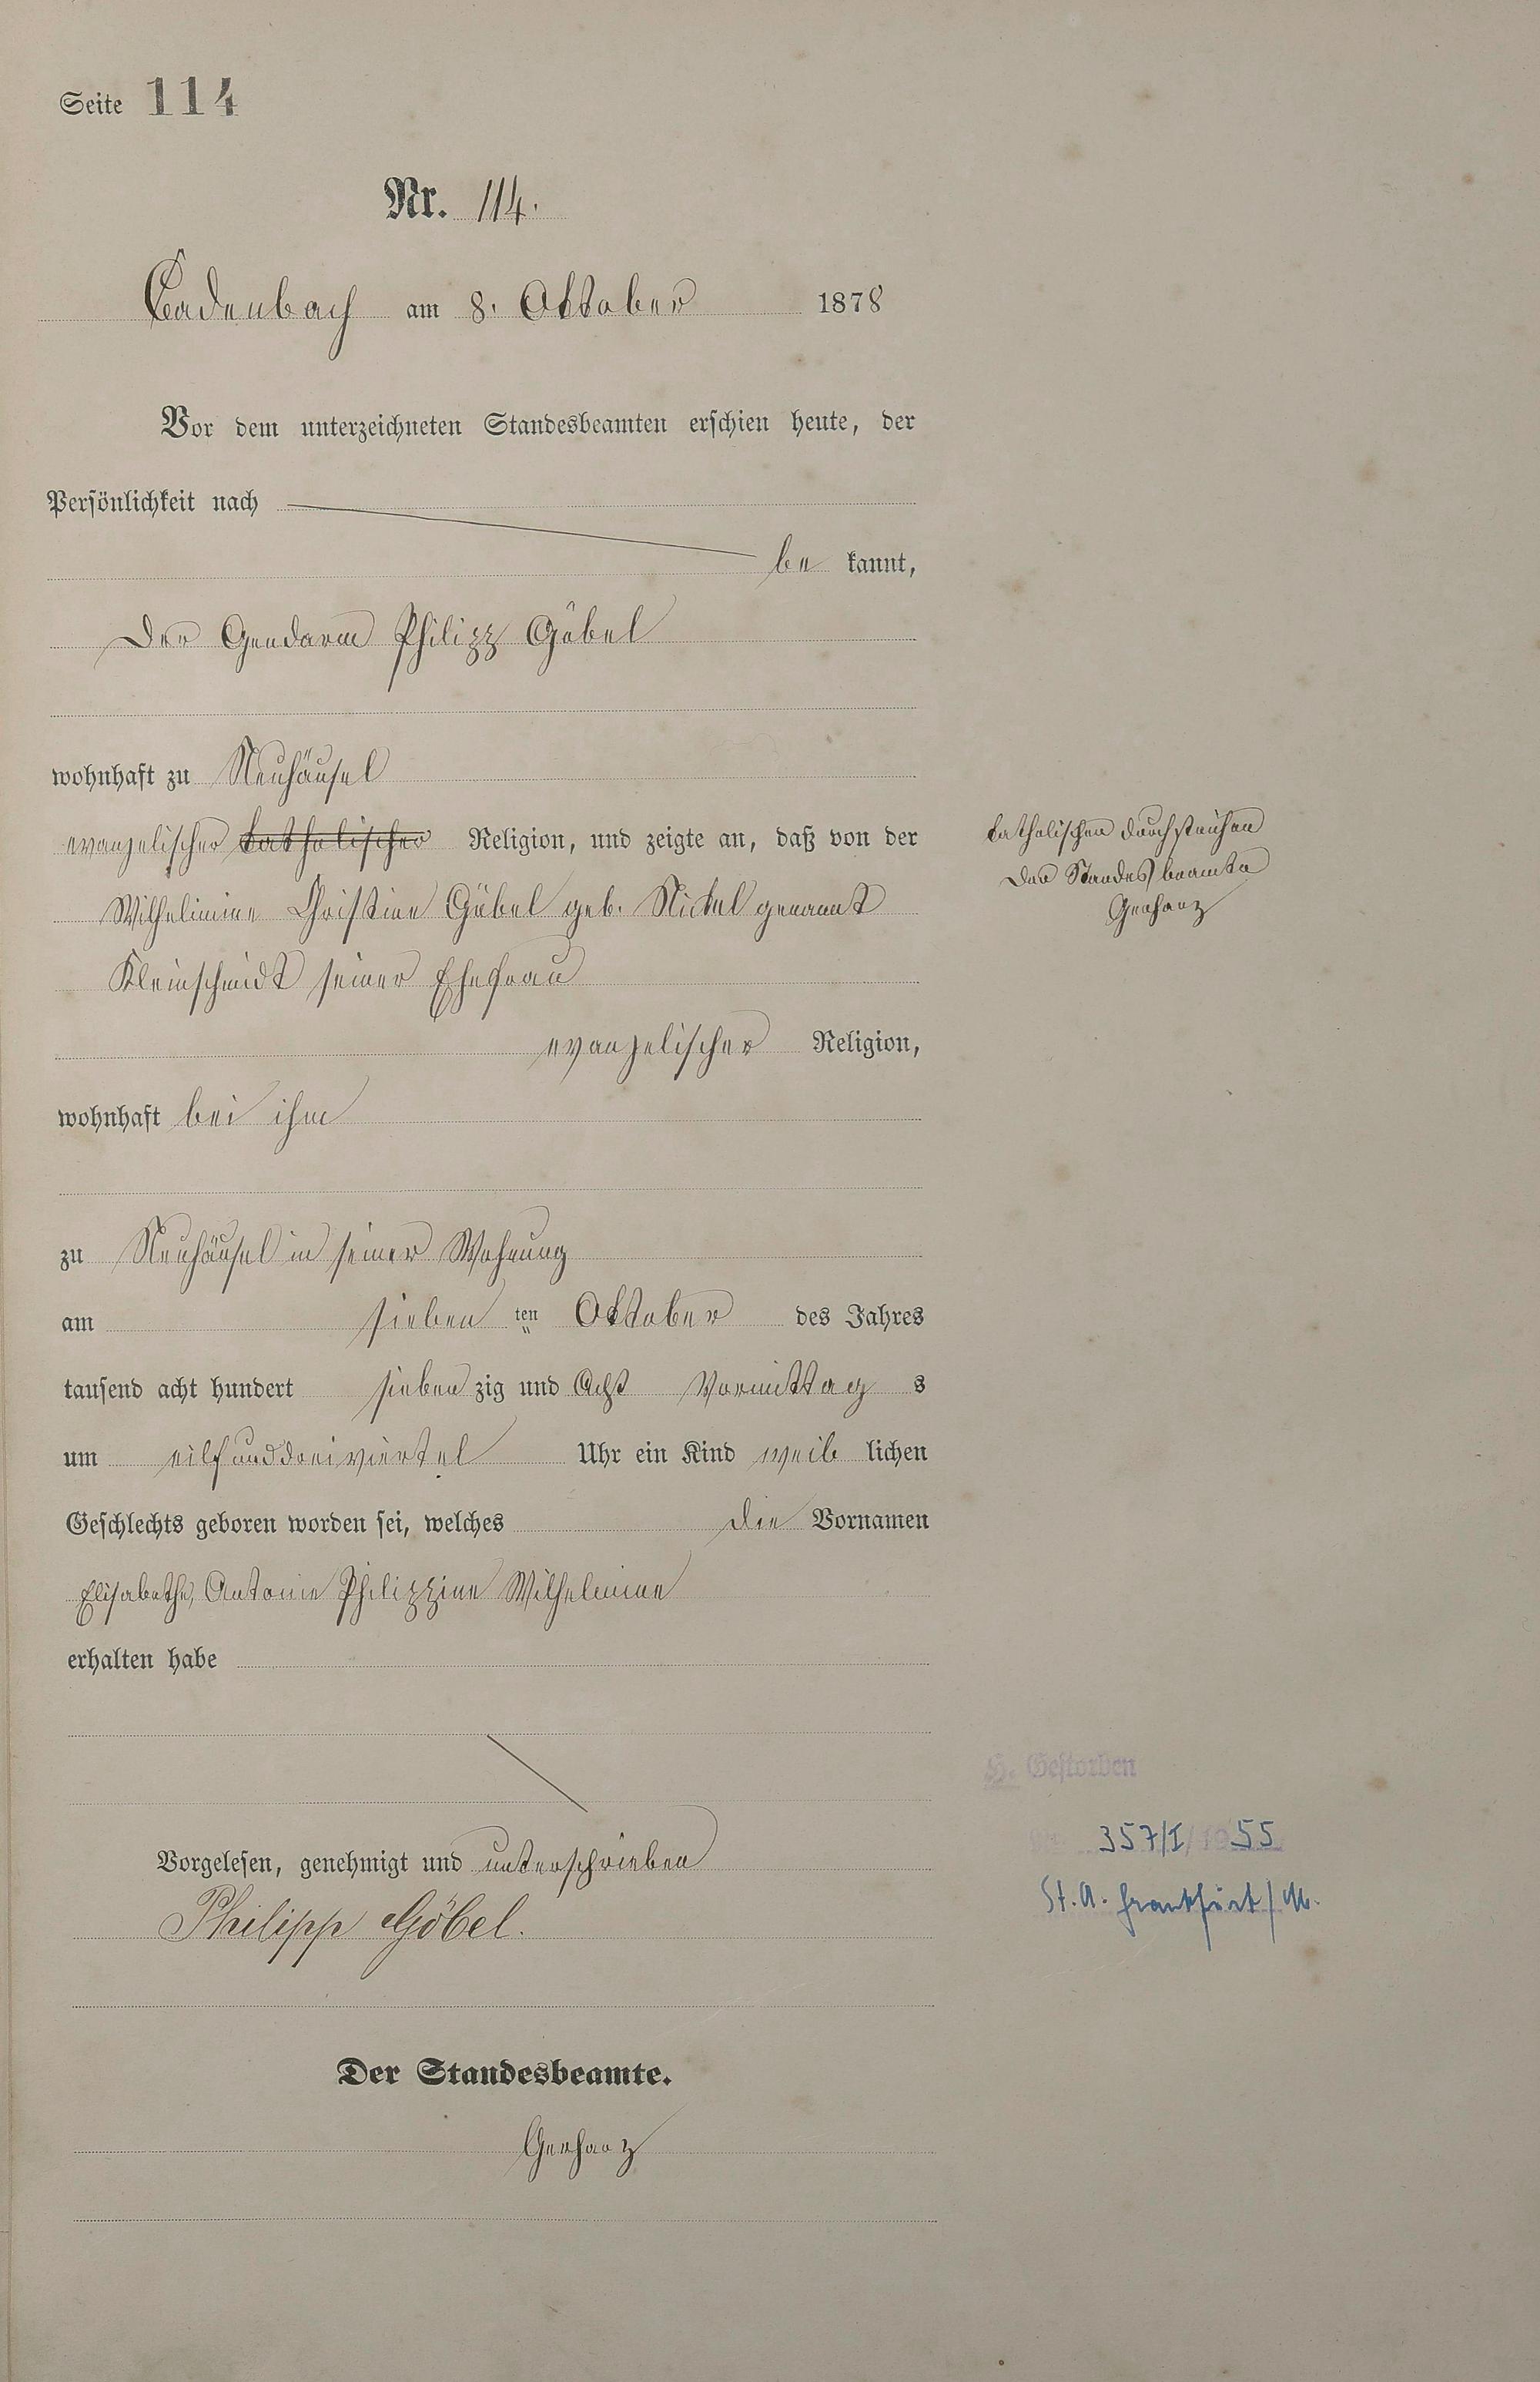 Seite 114
Nr. 114.
Cadenbach am 8. Oktober 1878
Vor dem unterzeichneten Standesbeamten erschien heute, der
Persönlichkeit nach
be kannt,
Der Gendarm Philipp Göbel
wohnhaft zu Neuhäusel
evangelischer katholischer Religion, und zeigte an, daß von der
Wilhelimine Christine Göbel geb. Nickel genannt
Kleinschmidt seiner Ehefrau
evangelischer Religion,
wohnhaft bei ihm
zu Neuhäusel in seiner Wohnung
am sieben ten Oktober des Jahres
tausend acht hundert sieben zig und Acht Vormittag s
um eilf und dreiviertel Uhr ein Kind weib lichen
Geschlechts geboren worden sei, welches die Vornamen
Elisabethe, Antonie Philippine Wilhelmine
erhalten habe
Vorgelesen, genehmigt und unterschrieben
Philipp Göbel.
Der Standesbeamte.
Gerharz
katholischen durchstrichen
Der Standesbeamte
Gerharz
H. Gestorben
357/I/1955
St. A. Frankfurt/M.